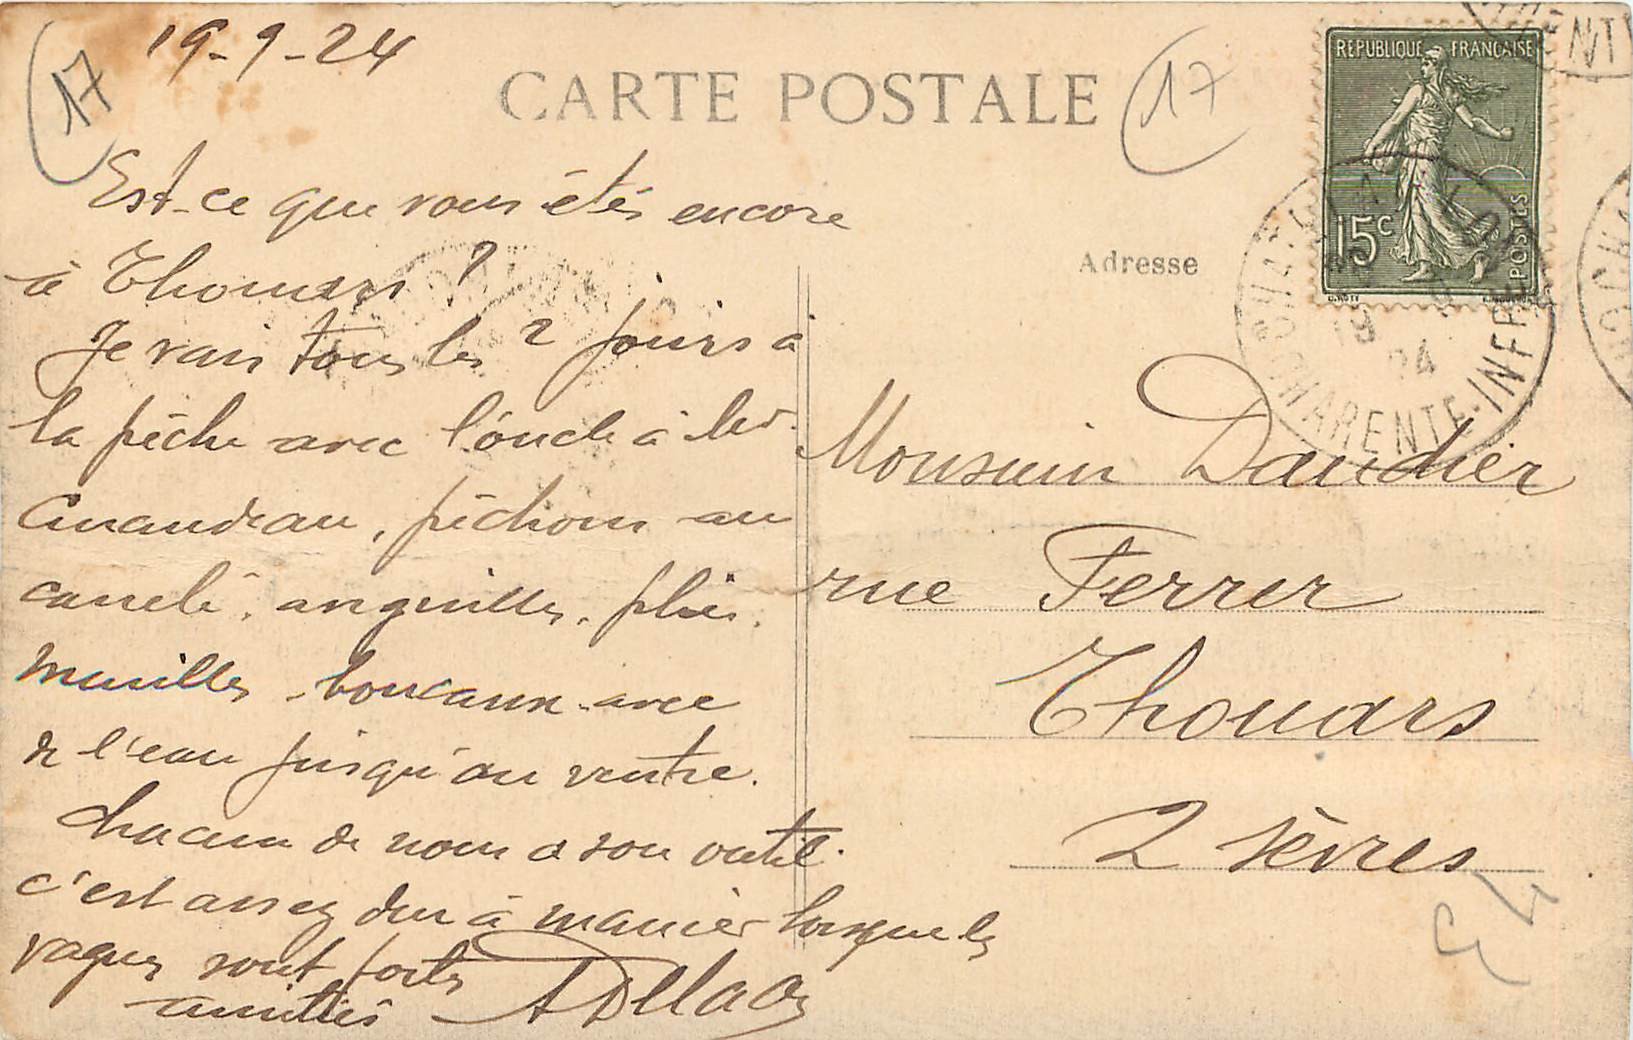 19-9-24
17
CARTE POSTALE
17
REPUBLIQUE FRANÇAISE
15c
POSTES
Est-ce que vous étés encore
à Thouars ?
Je vais tous les 2 jours à
la pêche avec l'oncle à
pêchons au
anguilles, plies,
boucaux avec
de l'eau jusqu'au ventre.
chacun de nous a son outil.
c'est assez dur à manier lorsque les
vagues sont fortes
amitiés
Adresse
CHARENTE-INFRE
19
24
Monsieur Daudier
rue Ferrer
Thouars
2 Sèvres